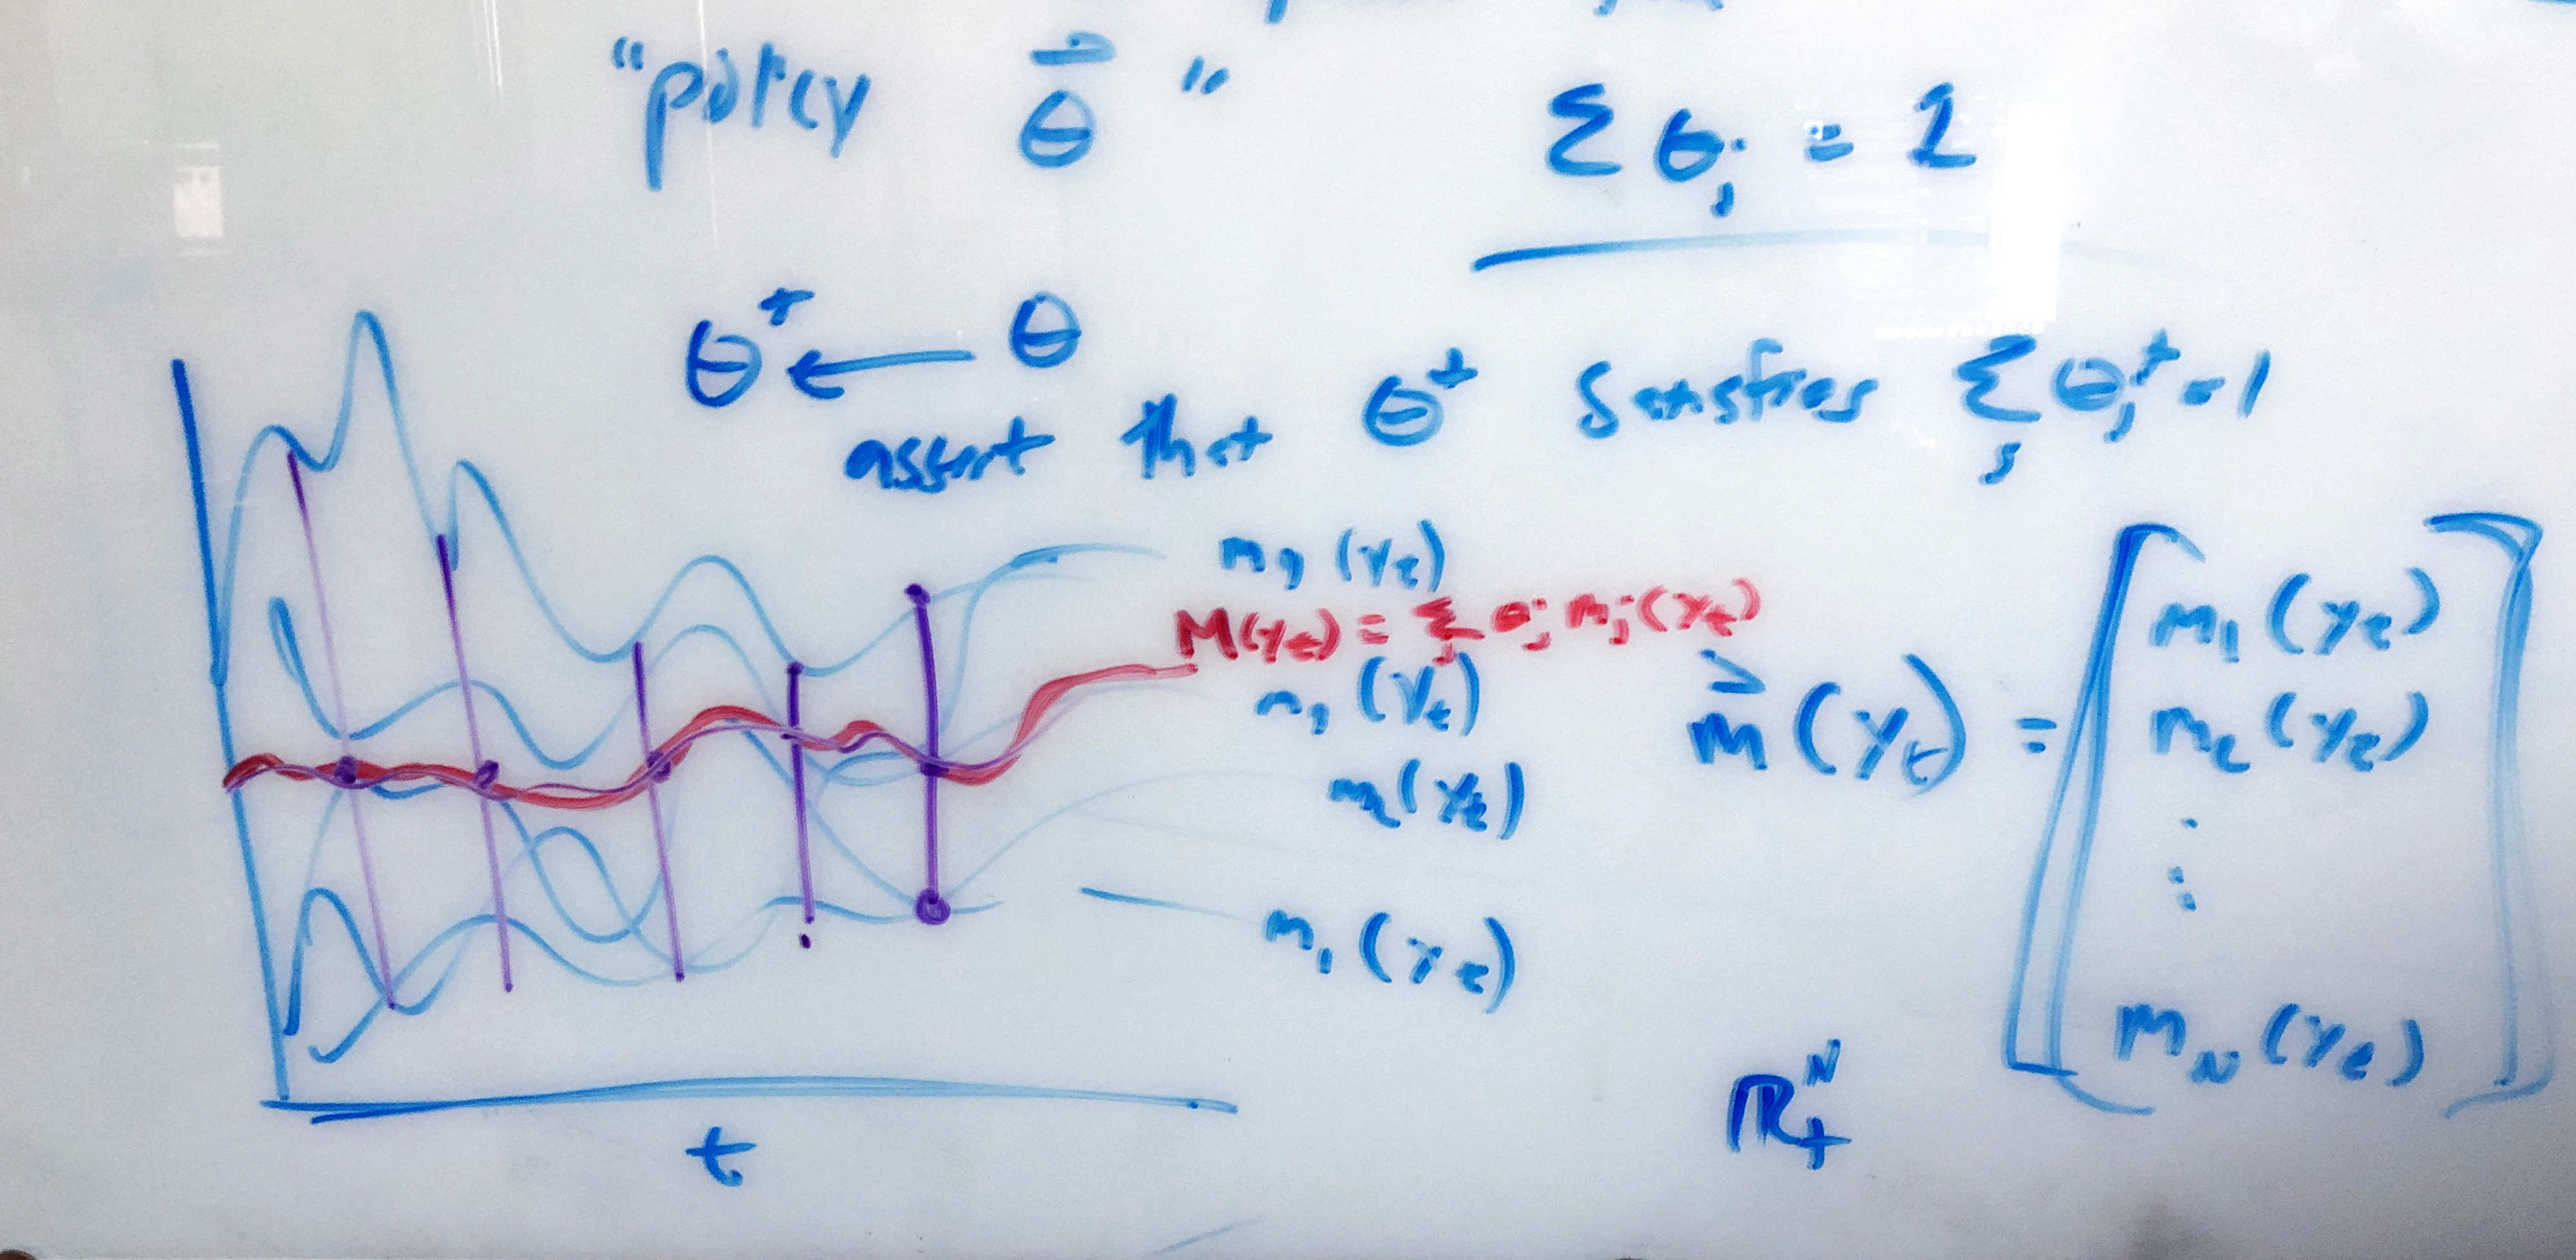 "policy θ⃗"
Σ θⱼ = 1
θ⁺ ← θ
assert that θ⁺ satisfies Σⱼ θⱼ⁺ = 1
m₃(yₜ)
M(yₜ) = Σⱼ θⱼ mⱼ(yₜ)
m₃(yₜ)
m₂(yₜ)
m₁(yₜ)
m⃗(yₜ) = [
m₁(yₜ)
m₂(yₜ)
⋮
m_N(yₜ)
]
ℝ₊ᴺ
t